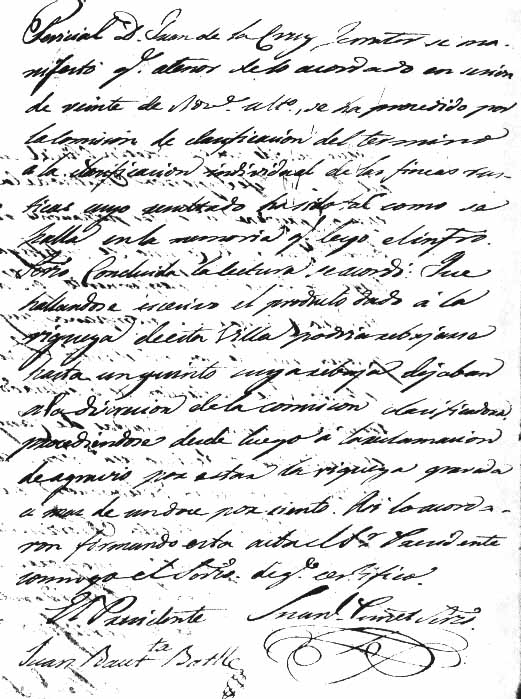 Pericial D. Juan de la Cruz se ma-
nifesto q.e atenor de lo acordado en sesion
de veinte de Nov.e ulto, se ha procedido por
la comision de clasificacion del termino
a la clasificacion individual de las fincas rus-
ticas cuyo resultado ha sido tal como se
halla en la memoria q.e leyo el infro.
Srio. Concluida la lectura, se acordó: Que
hallandose escesivo el producto dado á la
riqueza de esta Villa podria rebajarse
hasta un quinto cuya rebaja dejaban
a la discrecion de la comision clasificadora,
procediendose desde luego á la reclamacion
de agravio por estar la riqueza gravada
a mas de un doce por ciento. Asi lo acorda-
ron firmando esta acta el Sr. Presidente
conmigo el Srio. de q.e certifico.
El Presidente
Juan Baut.ta Batlle